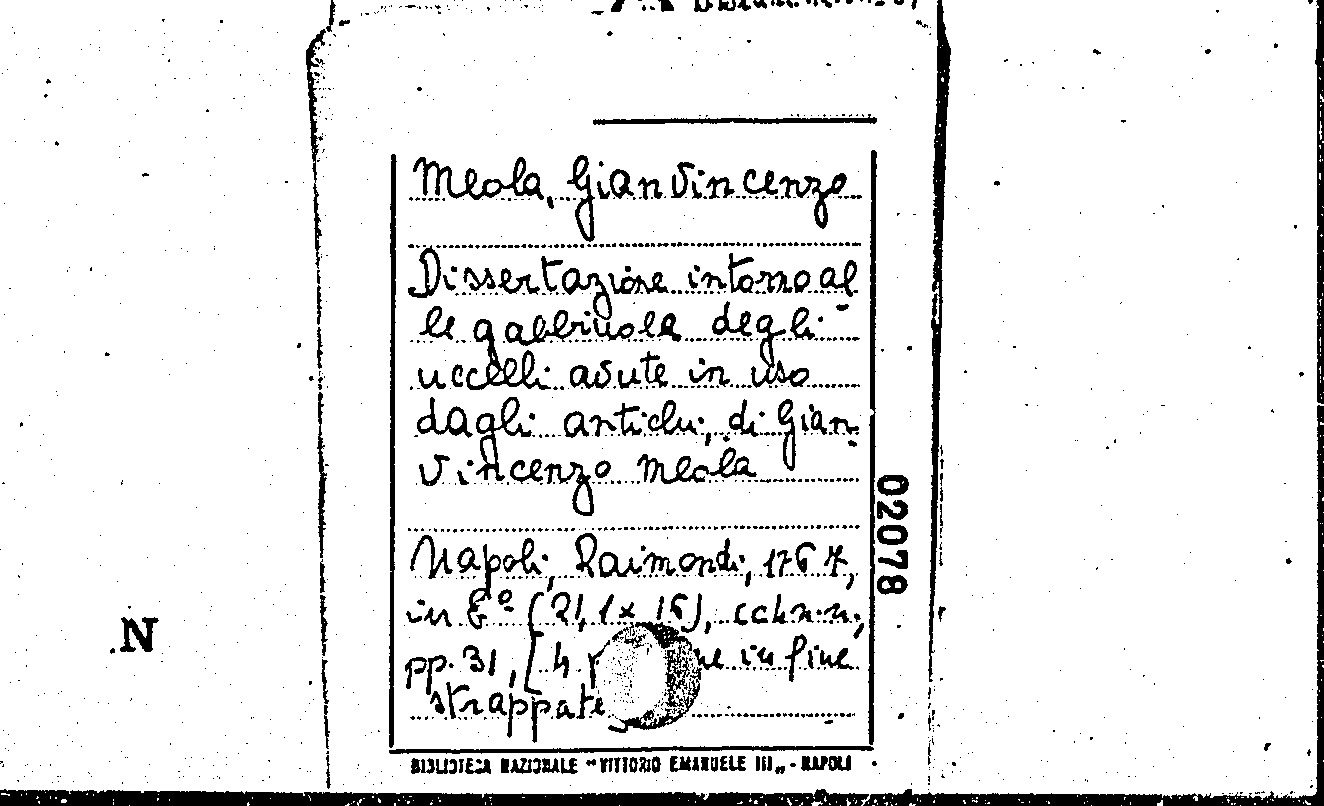 Meola, Gian Vincenzo
Dissertazione intorno al
le gabbiuole degli
uccelli avute in uso
dagli antichi, di Gian
Vincenzo Meola
Napoli, Raimondi, 1767,
in 8º (21,1 x 15), cc 4 n. n.,
pp. 31, [4 in fine
strappate
02078
N
BIBLIOTECA NAZIONALE "VITTORIO EMANUELE III„ - NAPOLI